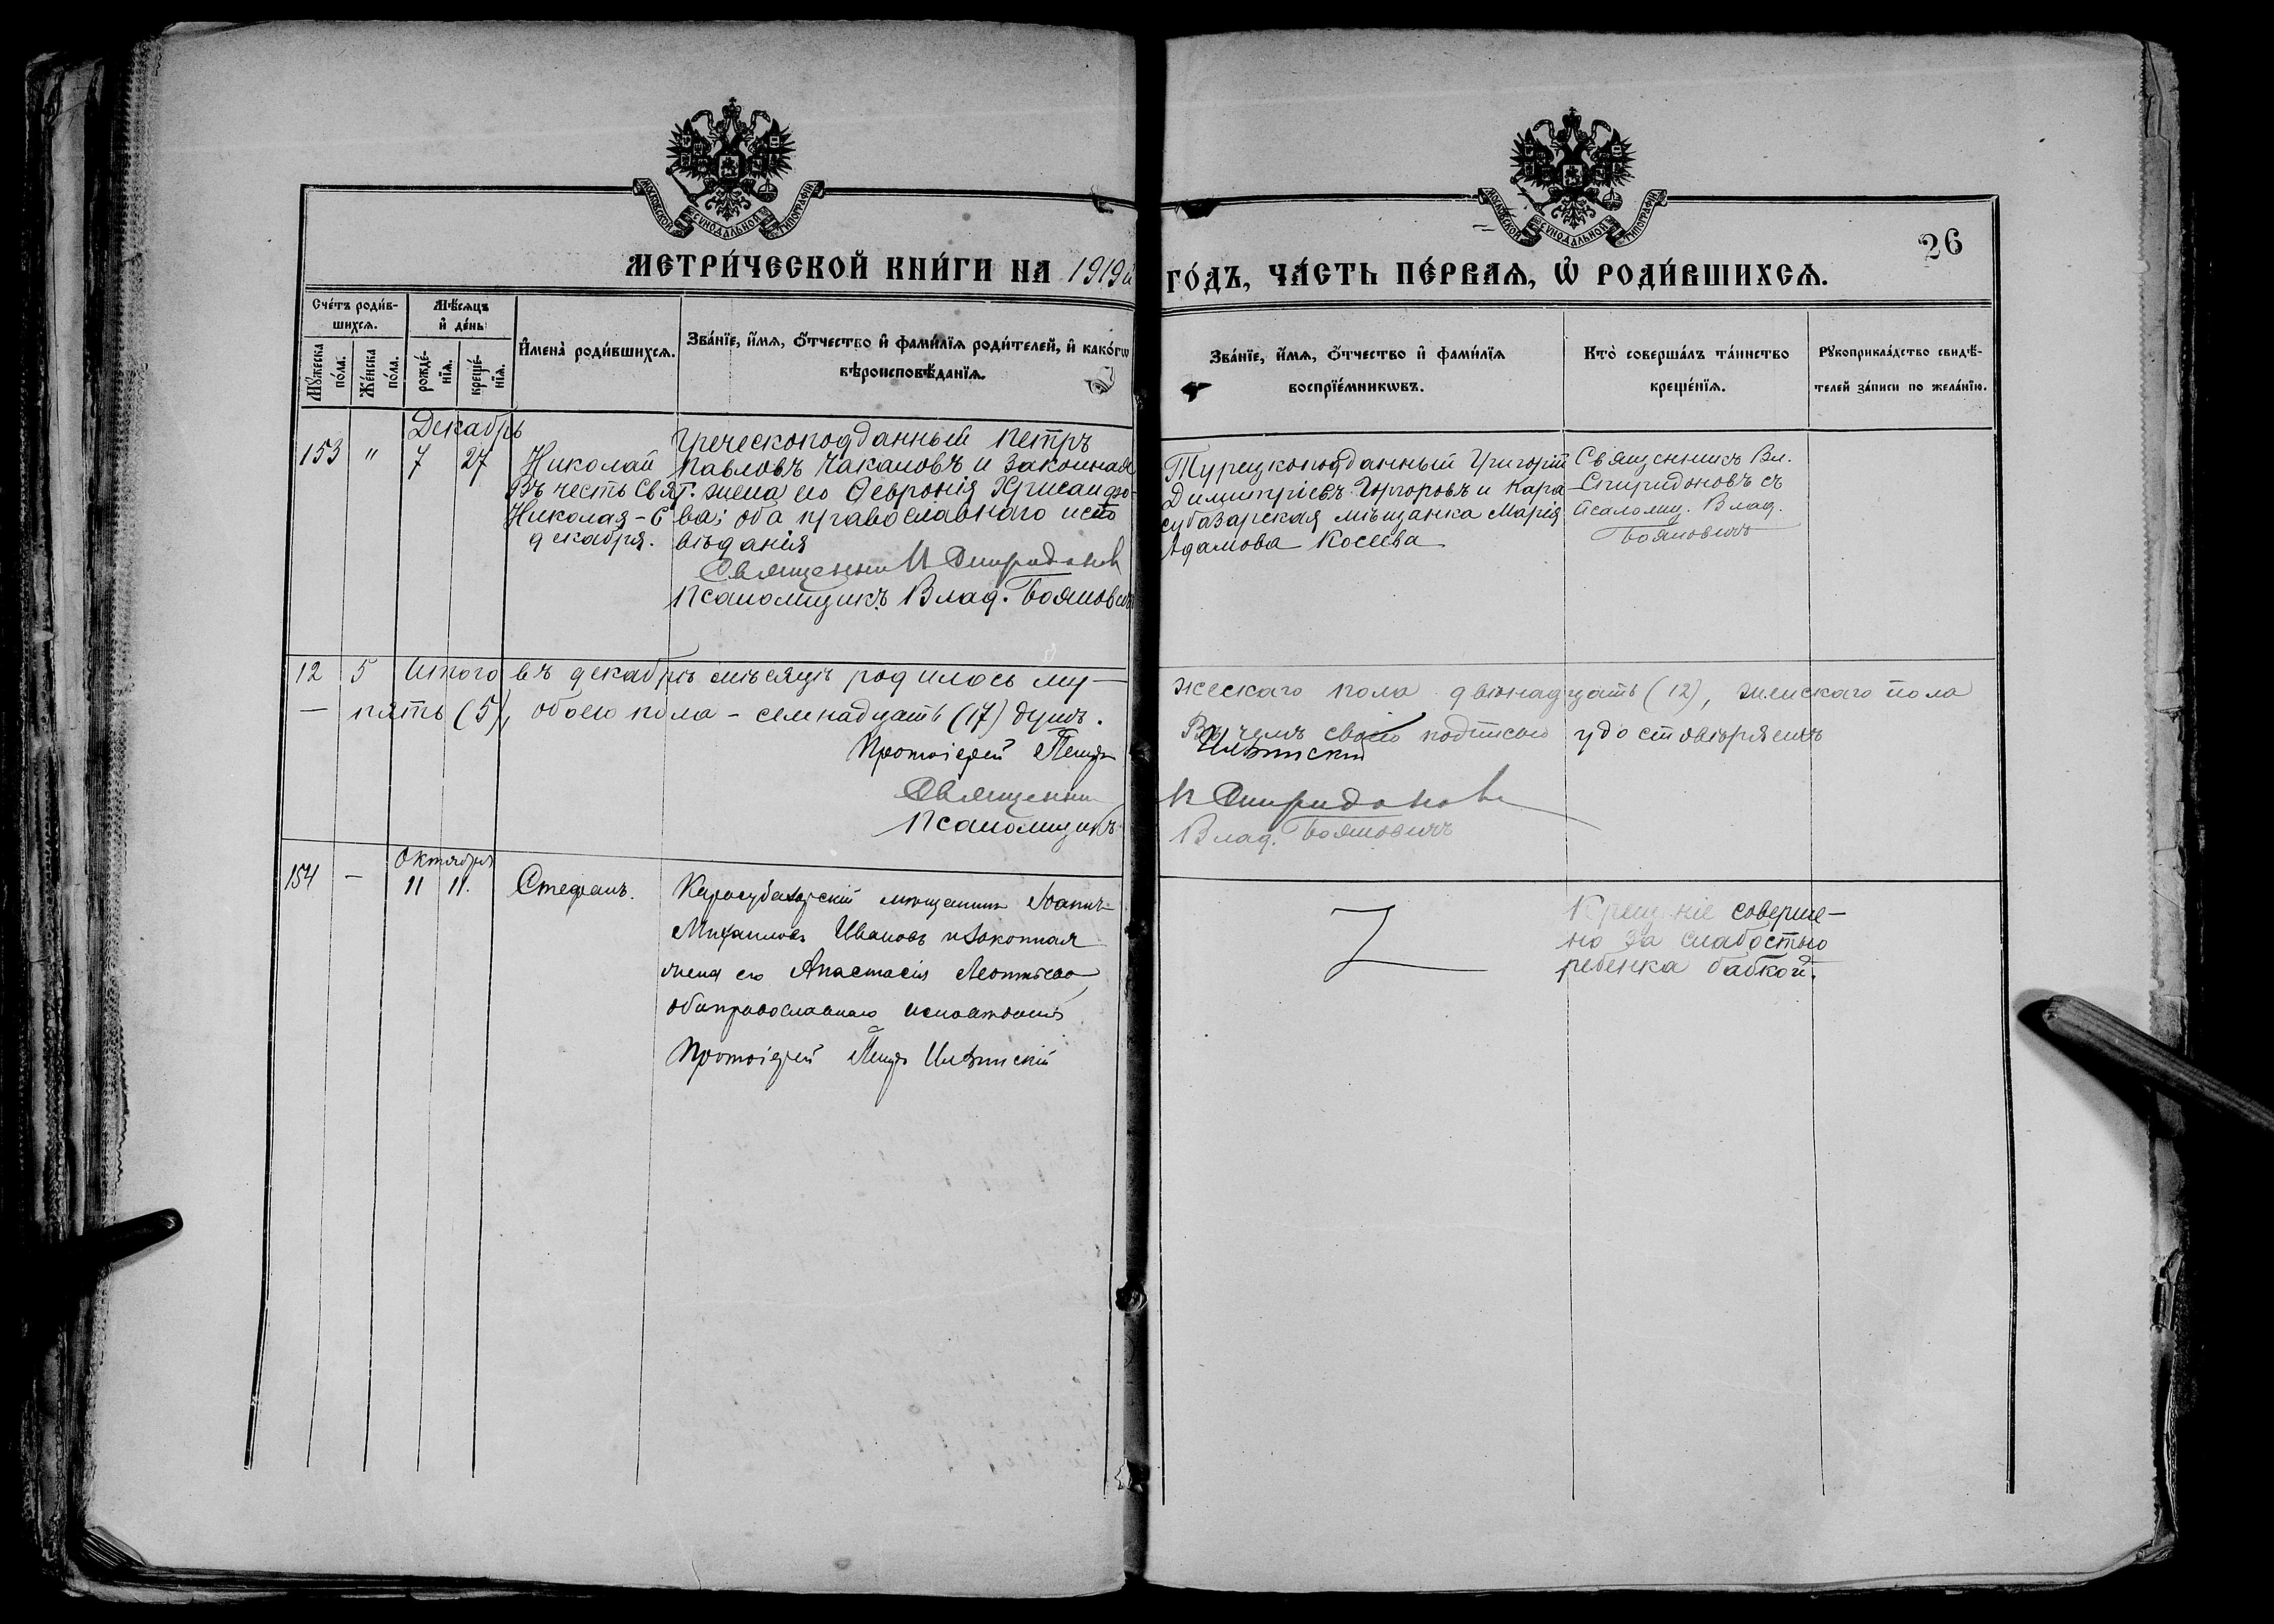 МОСКОВСКОЙ СУНОДАЛЬНОЙ ТИПОГРАФІИ
МОСКОВСКОЙ СУНОДАЛЬНОЙ ТИПОГРАФІИ
26
МЕТРИ́ЧЕСКОЙ КНИ́ГИ НА 1919й ГО́ДЪ, ЧА́СТЬ ПЕ́РВАѦ, Ѡ҆ РОДИ́ВШИХСѦ.
Сче́тъ роди́в-
шихсѧ.
Мꙋ́жеска по́ла.
Же́нска по́ла.
Мѣ́сѧцъ
и҆ де́нь
рожде́-
нїѧ.
креще́-
нїѧ.
И҆мена̀ роди́вшихсѧ.
Зва́нїе, и҆́мѧ, ѻ҆́тчество и҆ фами́лїѧ роди́телей, и҆ како́гѡ
вѣроисповѣ́данїѧ.
Зва́нїе, и҆́мѧ, ѻ҆́тчество и҆ фами́лїѧ
воспрїе́мникѡвъ.
Кто̀ соверша́лъ та́инство
креще́нїѧ.
Рꙋкоприкла́дство свидѣ́-
телей за́писи по жела́нїю.
Декабрь
153 " 7 27
Николай
Въ честь Свят.
Николая - 6
декабря.
Греческоподданный Петръ
Павловъ Чакаловъ и законная
жена его Февронія Хрисанфо-
ва; оба православнаго испо
вѣданія
Священник Спиридонов
Псаломщикъ Влад. Боянович
Турецкоподданный Григорій
Димитріевъ и Кара
субазарская мѣщанка Марія
Адамова Косеева
Священникъ Вл.
Спиридоновъ съ
псаломщ. Влад.
Бояновичъ
12 5 Итого въ декабрѣ мѣсяцѣ родилось му-
жескаго пола двѣнадцать (12), женскаго пола
— пять (5), обоего пола - семнадцать (17) душъ.
Въ чемъ своею подписью удостовѣряемъ
Протоіерей Петръ
Священник Спиридоновъ
Псаломщикъ Влад. Бояновичъ
Октября
154 — 11 11.
Стефанъ.
Карасубазарскій мѣщанинъ Іоаннъ
Михаиловъ Ивановъ и законная
жена его Анастасія Леонтьева
оба православнаго исповѣданія
Протоіерей Петръ
Крещеніе соверше-
но за слабостью
ребенка бабкой.